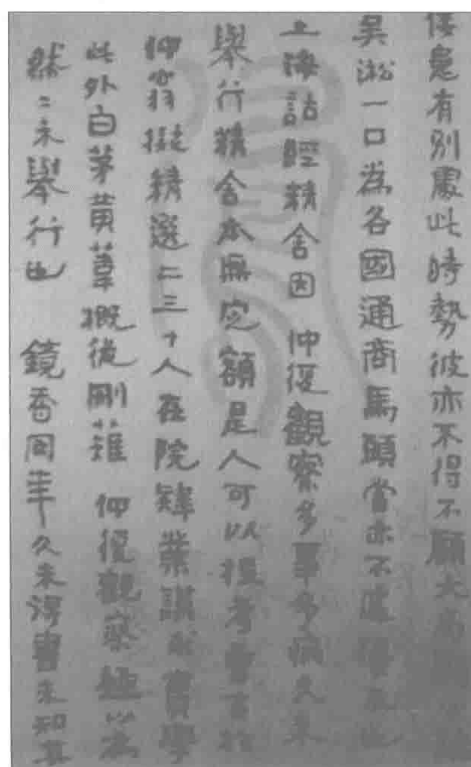 有別處此時勢彼亦不得不顧大局
吳淞一口為各國通商馬頭當亦不遽
上海詁經精舍因 仲復觀察多事多病久未
舉行精舍本無定額是人可以投考曾言於
仲翁擬精選二三十人在院肄業講求實學
此外白茅黃葦概從刪薙 仲復觀察極以為
然〻未舉行也 鏡香同年久未得書未知其